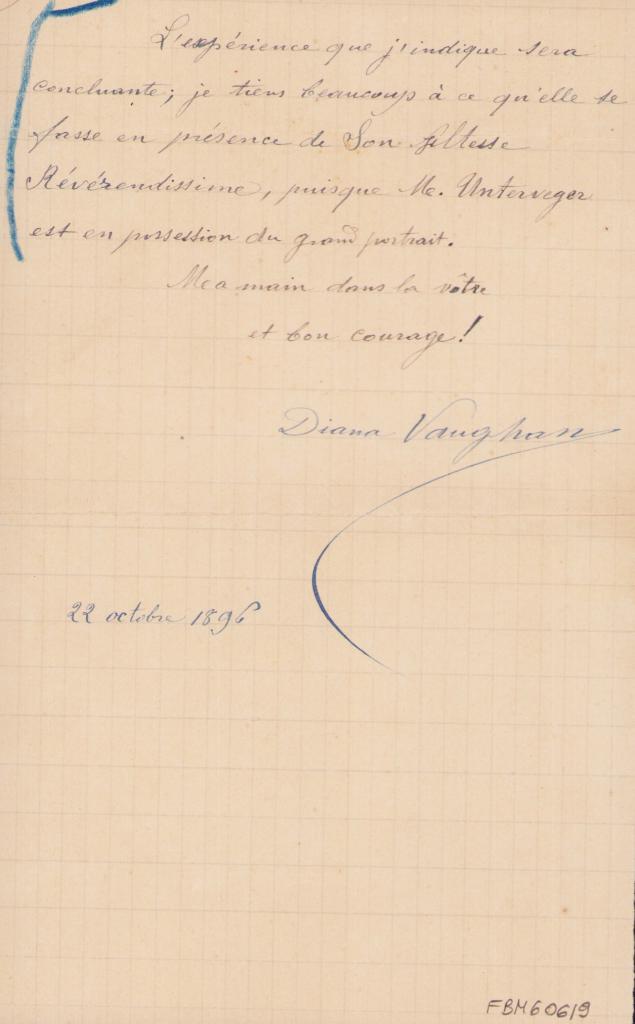 L'expérience que j'indique sera
concluante; je tiens beaucoup à ce qu'elle se
fasse en présence de Son Altesse
Révérendissime, puisque M. Unterveger
est en possession du grand portrait.
Ma main dans la vôtre
et bon courage!
Diana Vaughan
22 octobre 1896
FBM60619